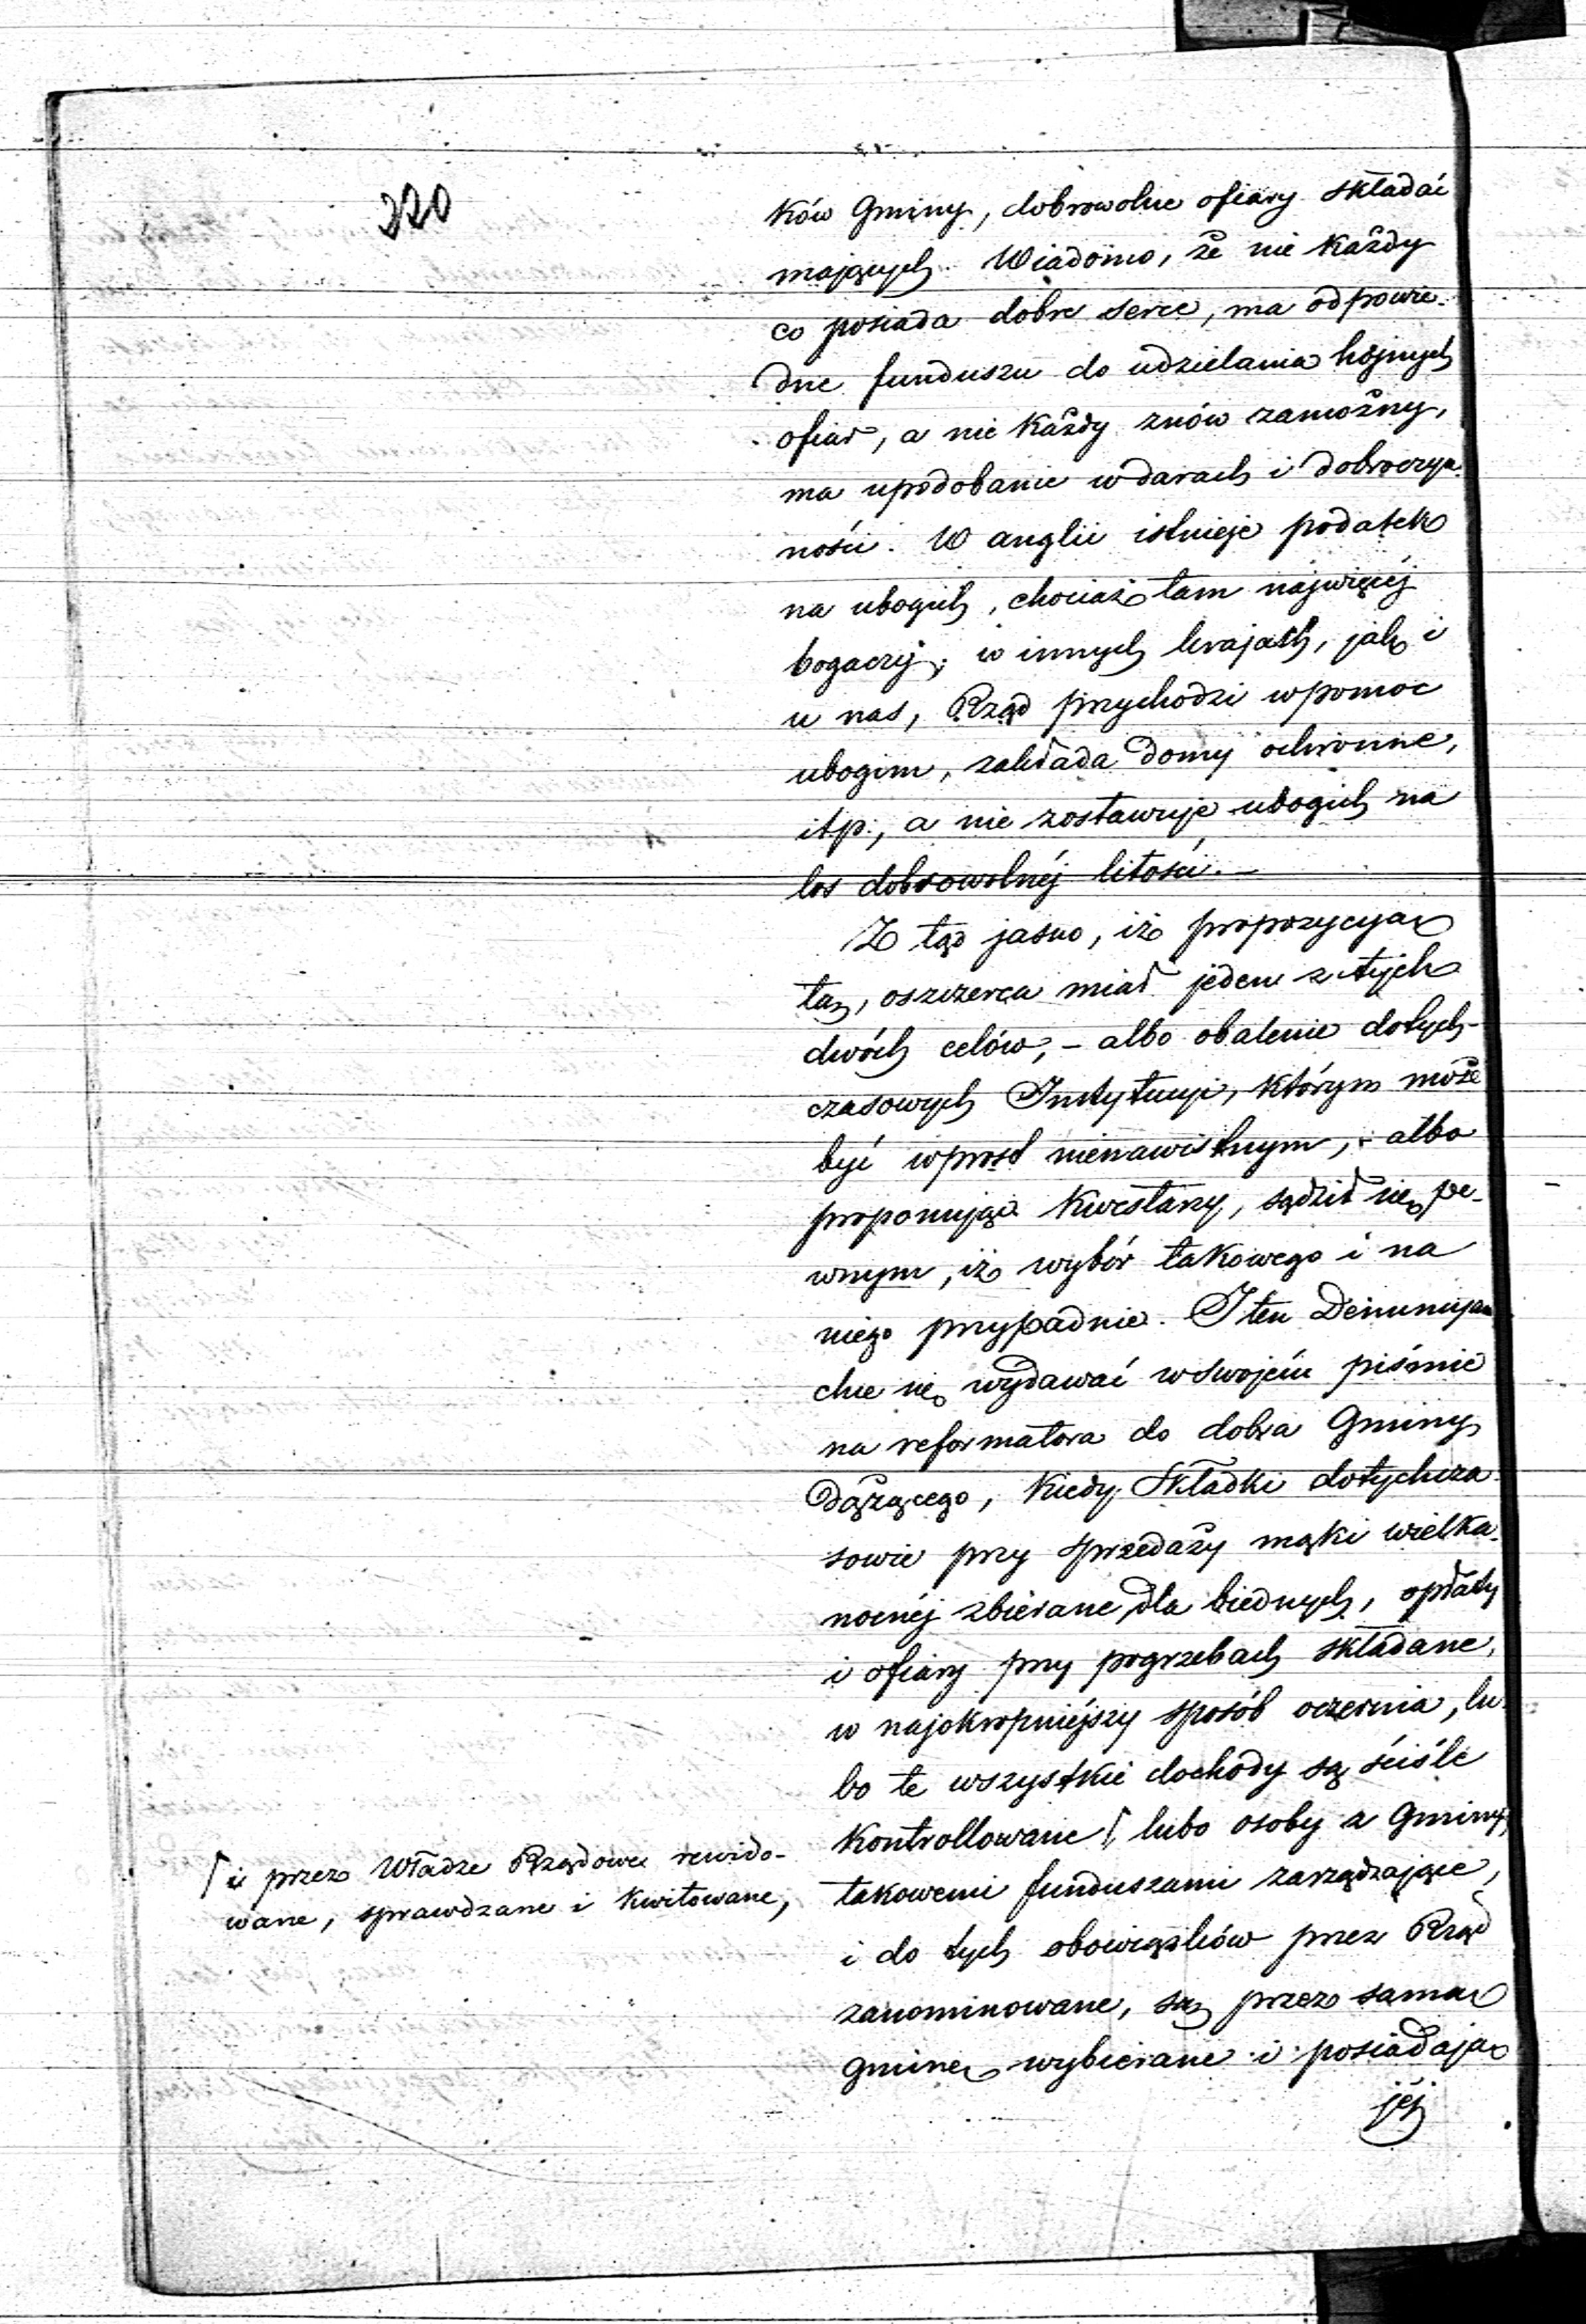 220
ków Gminy, dobrowolne ofiary składać
mających. Wiadomo, że nie każdy
co posiada dobre serce, ma odpowie-
dne funduszu do udzielania hojnych
ofiar, a nie każdy znów zamożny,
ma upodobanie w darach i dobroczyn-
ności. W anglii istnieje podatek
na ubogich, chociaż tam najwięcéj
bogaczy; w innych krajach, jak i
u nas, Rząd przychodzi w pomoc
ubogim, zakłada domy ochronne,
itp., a nie zostawuje ubogich na
los dobrowolnéj litości.—
Z tąd jasno, iż propozycyą
tą, oszczerca miał jeden z tych
dwóch celów, – albo obalenie dotych-
czasowych Instytucyi, którym może
być wprost nienawistnym, – albo
proponując Kwestarzy, sądził się pe-
wnym, iż wybór takowego i na
niego przypadnie. I ten Denuncyant
chce się wydawać w swojém piśmie
na reformatora do dobra Gminy
dążącego, kiedy składki dotychcza-
sowie przy sprzedaży mąki wielka-
nocnéj zbierane dla biednych, opłaty
i ofiary przy pogrzebach składane,
w najokropniéjszy sposób oczernia, lu-
bo te wszystkie dochody są ściśle
kontrollowane ⌈, lubo osoby z Gminy,
takowemi funduszami zarządzające,
i do tych obowiązków przez Rząd
zanominowane, są przez samą
gminę wybierane i posiadają
jéj
⌈ i przez Władze Rządowe rewido-
wane, sprawdzane i kwitowane,